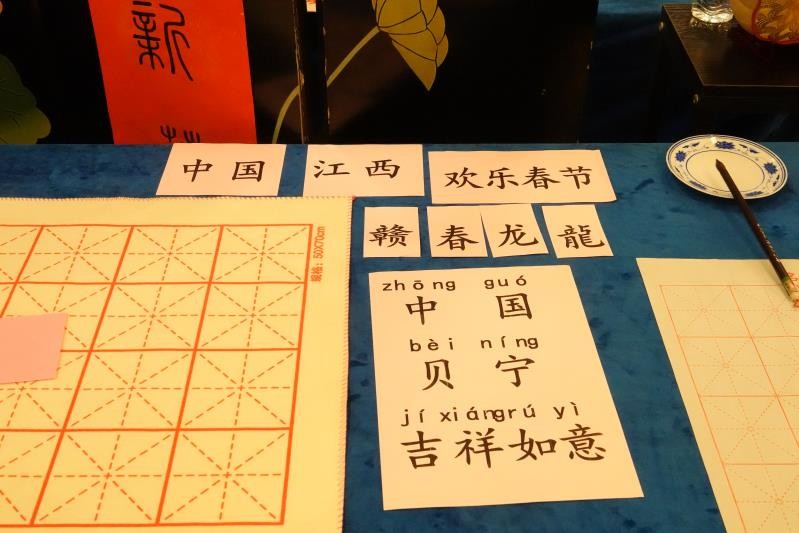 新
中国
江西
欢乐春节
赣
春
龙
龍
规格：50X70cm
zhōng guó
中国
bèi níng
贝宁
jí xiángrú yì
吉祥如意